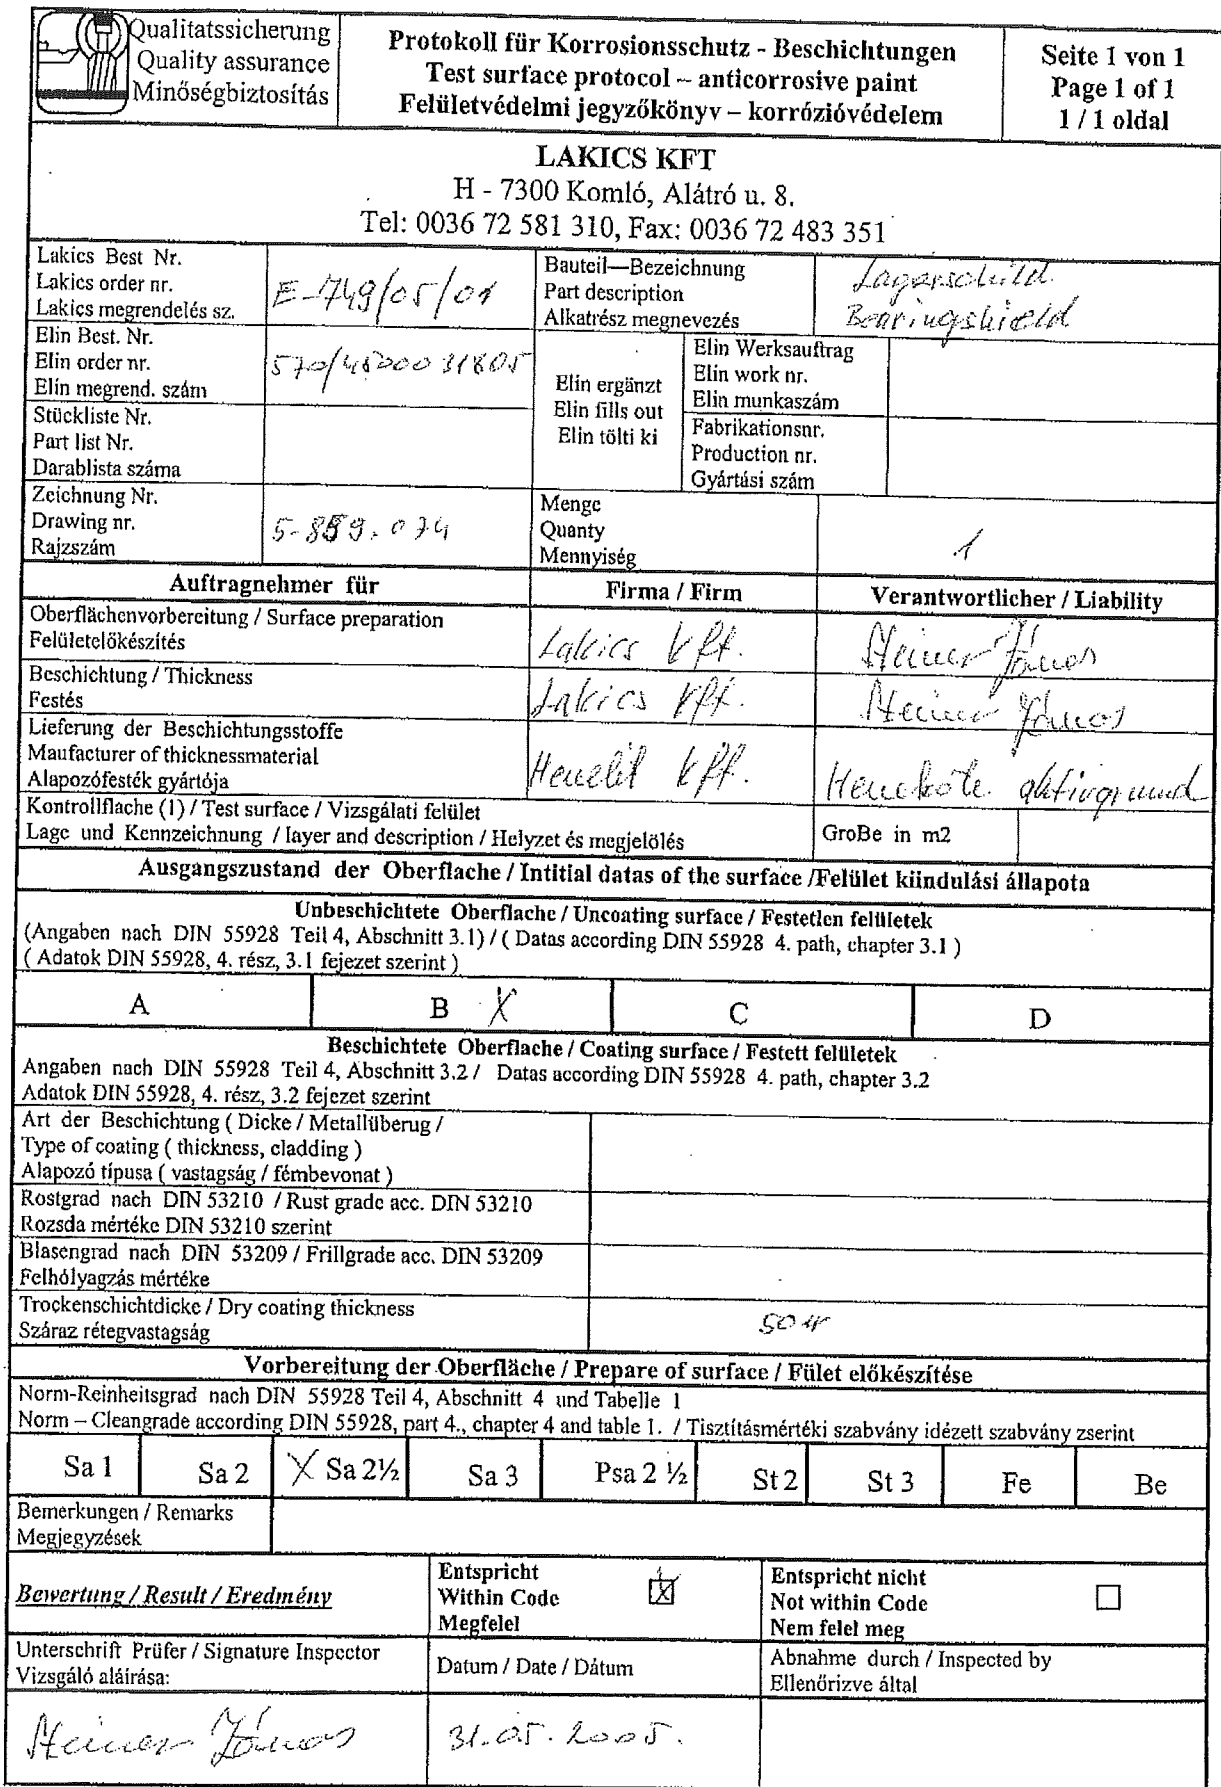 Qualitatssicherung
Quality assurance
Minőségbiztosítás
Protokoll für Korrosionsschutz - Beschichtungen
Test surface protocol – anticorrosive paint
Felületvédelmi jegyzőkönyv – korrózióvédelem
Seite 1 von 1
Page 1 of 1
1 / 1 oldal
LAKICS KFT
H - 7300 Komló, Alátró u. 8.
Tel: 0036 72 581 310, Fax: 0036 72 483 351
Lakics Best Nr.
Lakics order nr.
Lakics megrendelés sz.
E-749/05/01
Bauteil—Bezeichnung
Part description
Alkatrész megnevezés
Lagerschild
Bearingshield
Elin Best. Nr.
Elin order nr.
Elin megrend. szám
570/4500031805
Elin ergänzt
Elin fills out
Elin tölti ki
Elin Werksauftrag
Elin work nr.
Elin munkaszám
Stückliste Nr.
Part list Nr.
Darablista száma
Fabrikationsnr.
Production nr.
Gyártási szám
Zeichnung Nr.
Drawing nr.
Rajzszám
5-859.074
Menge
Quanty
Mennyiség
1
Auftragnehmer für
Firma / Firm
Verantwortlicher / Liability
Oberflächenvorbereitung / Surface preparation
Felületelőkészítés
Lakics Kft.
Steiner János
Beschichtung / Thickness
Festés
Lakics Kft.
Steiner János
Lieferung der Beschichtungsstoffe
Maufacturer of thicknessmaterial
Alapozófesték gyártója
Kft.
aktivgrund
Kontrollflache (1) / Test surface / Vizsgálati felület
Lage und Kennzeichnung / layer and description / Helyzet és megjelölés
GroBe in m2
Ausgangszustand der Oberflache / Intitial datas of the surface /Felület kiindulási állapota
Unbeschichtete Oberflache / Uncoating surface / Festetlen felületek
(Angaben nach DIN 55928 Teil 4, Abschnitt 3.1) / ( Datas according DIN 55928 4. path, chapter 3.1 )
( Adatok DIN 55928, 4. rész, 3.1 fejezet szerint )
A
B X
C
D
Beschichtete Oberflache / Coating surface / Festett felületek
Angaben nach DIN 55928 Teil 4, Abschnitt 3.2 / Datas according DIN 55928 4. path, chapter 3.2
Adatok DIN 55928, 4. rész, 3.2 fejezet szerint
Art der Beschichtung ( Dicke / Metallüberug /
Type of coating ( thickness, cladding )
Alapozó típusa ( vastagság / fémbevonat )
Rostgrad nach DIN 53210 / Rust grade acc. DIN 53210
Rozsda mértéke DIN 53210 szerint
Blasengrad nach DIN 53209 / Frillgrade acc. DIN 53209
Felhólyagzás mértéke
Trockenschichtdicke / Dry coating thickness
Száraz rétegvastagság
50 µ
Vorbereitung der Oberfläche / Prepare of surface / Fület előkészítése
Norm-Reinheitsgrad nach DIN 55928 Teil 4, Abschnitt 4 und Tabelle 1
Norm – Cleangrade according DIN 55928, part 4., chapter 4 and table 1. / Tisztításmértéki szabvány idézett szabvány zserint
Sa 1
Sa 2
X Sa 2½
Sa 3
Psa 2 ½
St 2
St 3
Fe
Be
Bemerkungen / Remarks
Megjegyzések
Bewertung / Result / Eredmény
Entspricht
Within Code
Megfelel
X
Entspricht nicht
Not within Code
Nem felel meg
Unterschrift Prüfer / Signature Inspector
Vizsgáló aláírása:
Datum / Date / Dátum
Abnahme durch / Inspected by
Ellenőrizve által
Steiner János
31.05.2005.